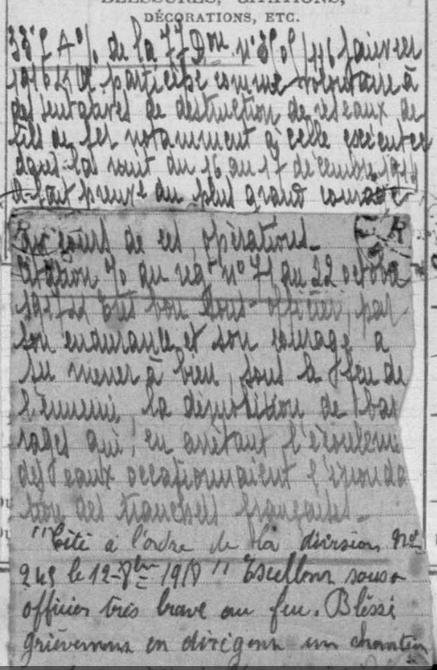 BLESSURES, CITATIONS,
DÉCORATIONS, ETC.
de la 77 Don n°
1916 a participé comme volontaire à
des tentatives de destruction de réseaux de
fils de fer notamment à celle exécutée
dans la nuit du 16 au 17 décembre 191
a fait preuve du plus grand courage
au cours de ces opérations
Citation % du rég n° 71 du 22 octobre
1917 "Très bon sous-officier, par
son endurance et son courage a
su mener à bien, sous le feu de
l'ennemi, la démolition de bar
rages qui, en arrêtant l'écoulement
des eaux occasionnaient l'inonda
tion des tranchées françaises.
"Cité à l'ordre de la division No
249 le 12-8bre 1918" Excellent sous-
officier très brave au feu. Blessé
grièvement en dirigeant un chantier